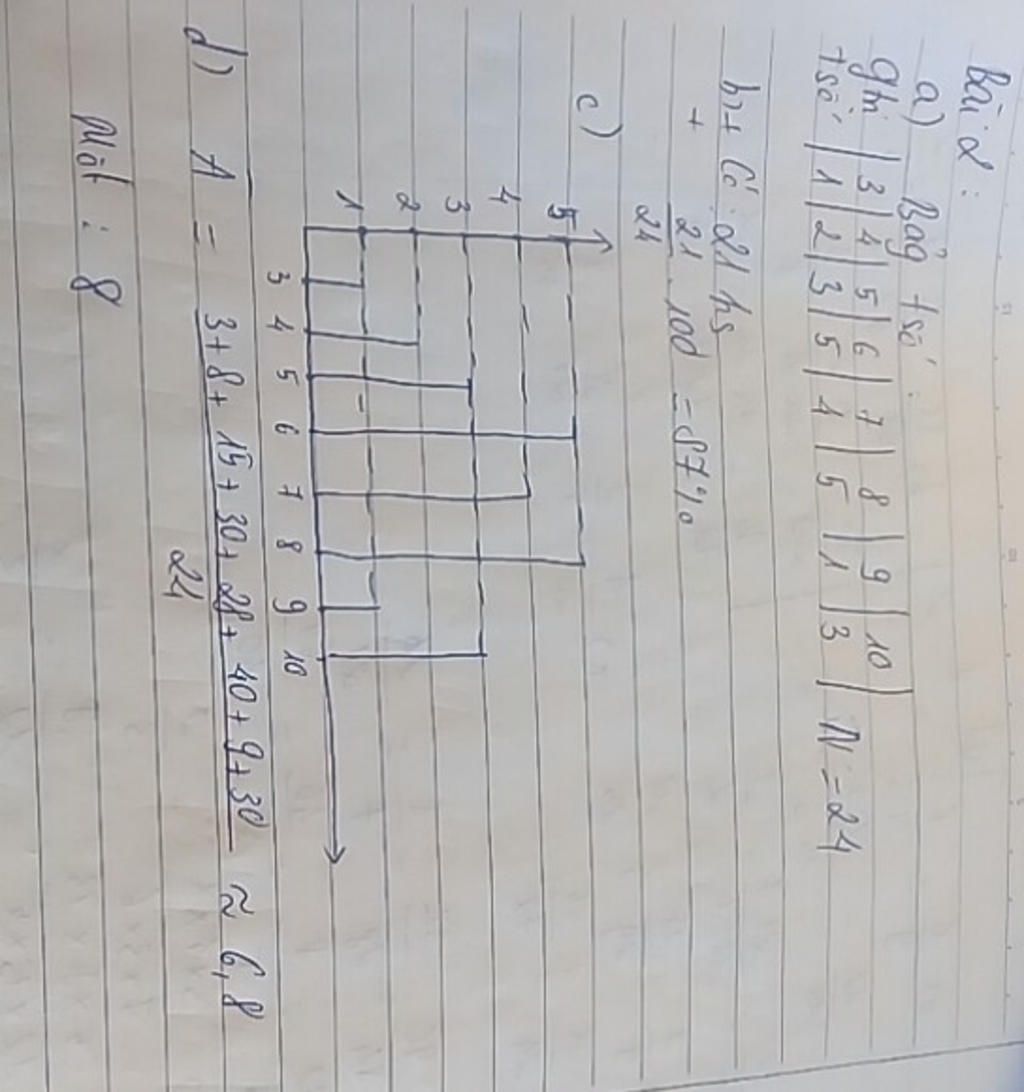 Bài 2:
a) Bảg tsố.
gtrị | 3 | 4 | 5 | 6 | 7 | 8 | 9 | 10 |
tsố | 1 | 2 | 3 | 5 | 4 | 5 | 1 | 3 | N = 24
b) + Có: 21 hs
+ 21/24 . 100 = 87%
c)
5
4
3
2
1
3 4 5 6 7 8 9 10
d) A = (3 + 8 + 15 + 30 + 28 + 40 + 9 + 30)/24 ≈ 6,8
Mốt : 8